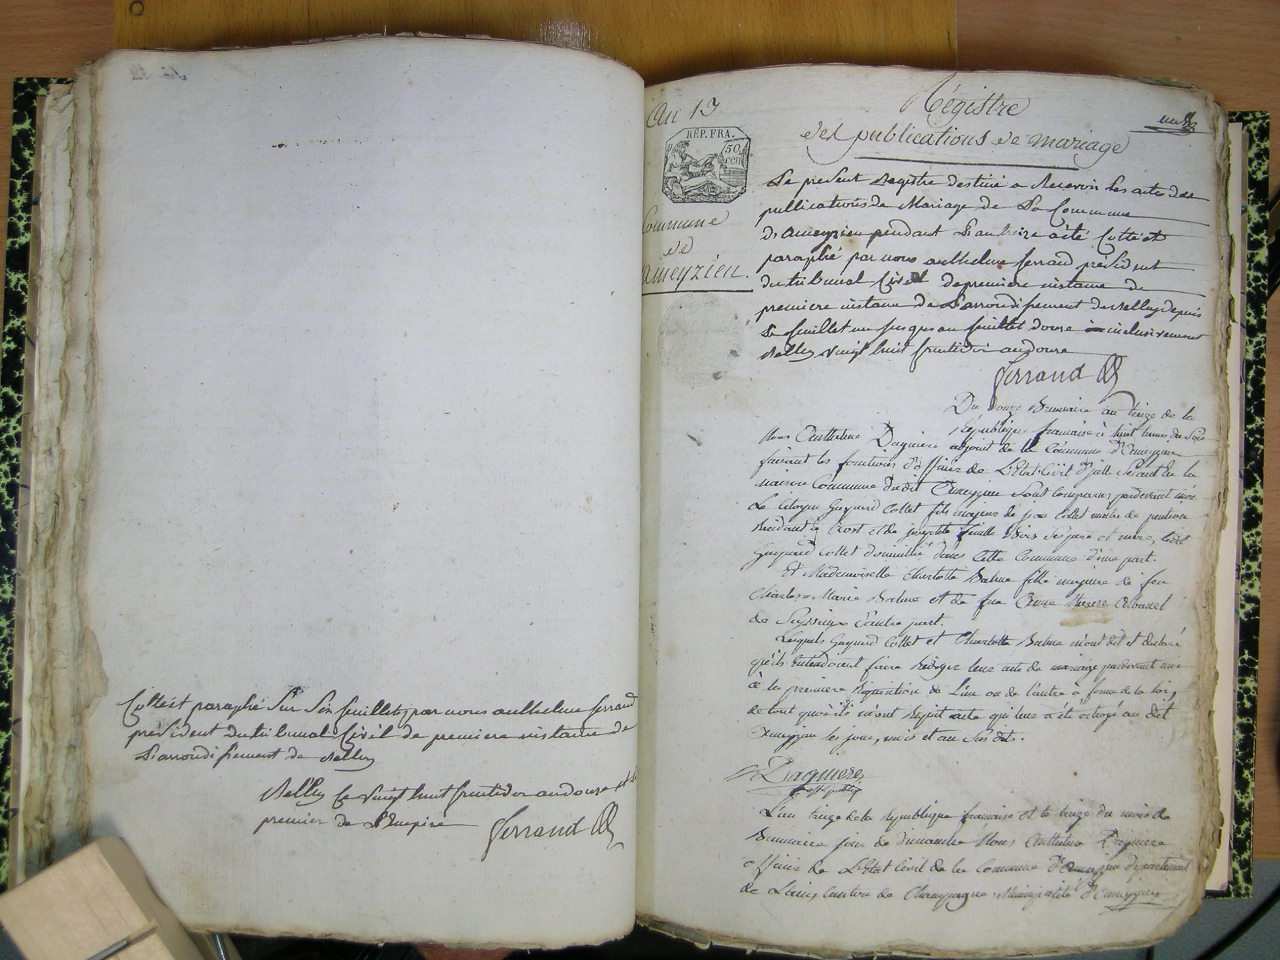 Cotté et paraphé sur six feuillets par nous anthelme ferrand
président du tribunal Civil de première instance de
L'arrondissement de Belley
Belley Ce vingt huit fructidor an douze
premier de L'Empire Ferrand
An 13
Régistre
des publications de mariage
RÉP. FRA.
50
cen
Commune
de
ameyzieu.
Le présent Régistre destiné a Recevoir les actes de
publications de Mariage de La Commune
D'ameyzieu pendant L'an treize a été Cotté et
paraphé par nous anthelme ferrand président
du tribunal Civil de premiere instance de
premiere instance de L'arrondissement de Belley depuis
Le feuillet un jusques au feuillet douze inclusivement
Belley vingt huit fructidor an douze
Ferrand
Du douze Brumaire an treize de la
République française à huit heures du soir
Nous Anthelme Daguiere adjoint de la Commune d'Ameyzieu
faisant les fonctions d'officier de L'Etat Civil d'jelle Séant en la
maison Commune dudit Ameyzieu Sont comparus pardevant moi
Le Citoyen Gaspard Collet fils majeur de feu Collet
Résidant à et de Josephte ses père et mere, ledit
Gaspard Collet domicillié dans cette Commune d'une part.
Et Mademoiselle Charlotte Balme fille majeure de feu
Charles Marie Balme et de feu
de d'autre part.
Lesquels Gaspard Collet et Charlotte Balme m'ont dit et déclaré
qu'ils entendoient faire rédiger leur acte de mariage pardevant moi
à la premiere Réquisition de L'un ou de L'autre à forme de la loi,
de tout quoi ils m'ont requit acte qui leur a été octroyé au dit
Ameyzieu les jour, mois et an Sus dits.
Daguiere
L'an treize de la République française et le treize du mois de
Brumaire jour de dimanche Nous Anthelme Daguiere
officier de L'Etat Civil de la Commune d'Ameyzieu département
de L'ain Canton de Champagne Municipalité d'Ameyzieu